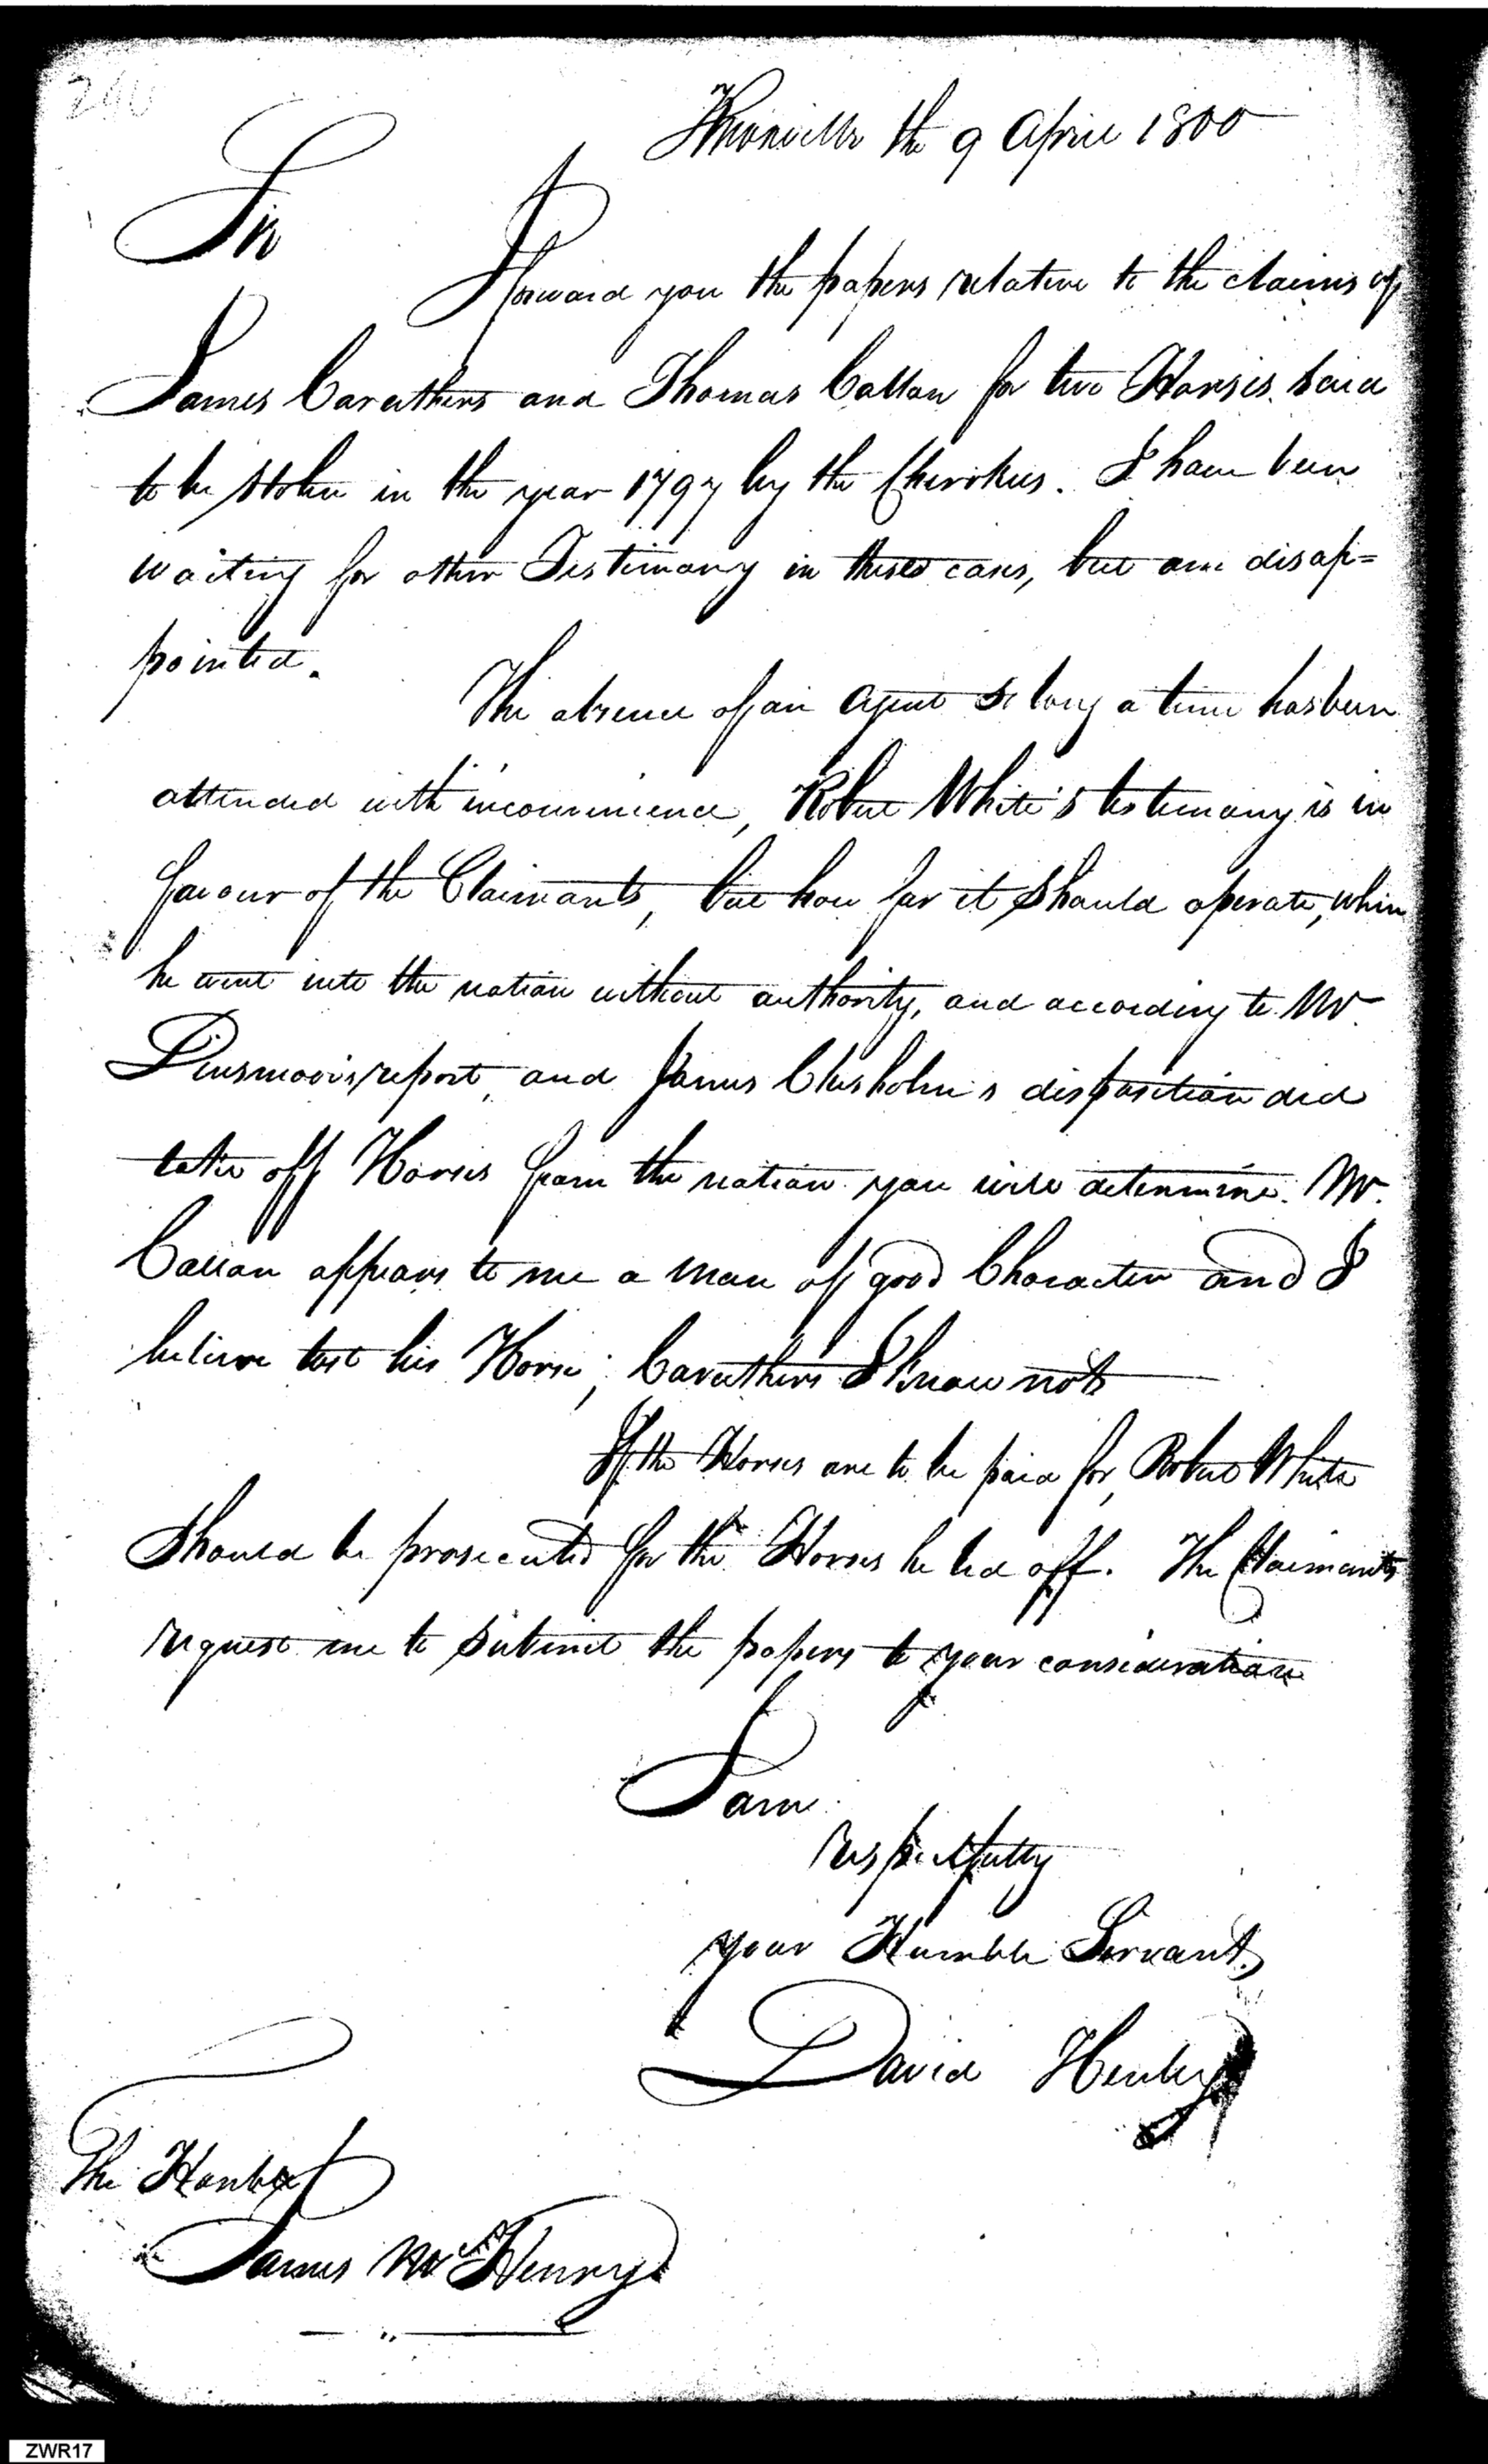 240
Knoxville the 9 April 1800
Sir
I forward you the papers relative to the claims of
James Caruthers and Thomas Callan for two Horses said
to be stolen in the year 1797 by the Cherokees. I have been
waiting for other Testimony in these cases, but am disap=
pointed.
The absence of an Agent so long a time has been
attended with inconvenience, Robert White's testimony is in
favour of the Claimants, but how far it should operate, when
he went into the nation without authority, and according to Mr.
Dinsmoor's report, and James Chisholm's disposition did
take off Horses from the nation you will determine. Mr.
Callan appears to me a man of good Character and I
believe lost his Horse; Caruthers I know not
If the Horses are to be paid for, Robert White
should be prosecuted for the Horses he led off. The Claimants
request me to submit the papers to your consideration
I am
respectfully
your Humble Servant,
David Henley
The Honble
James McHenry
ZWR17